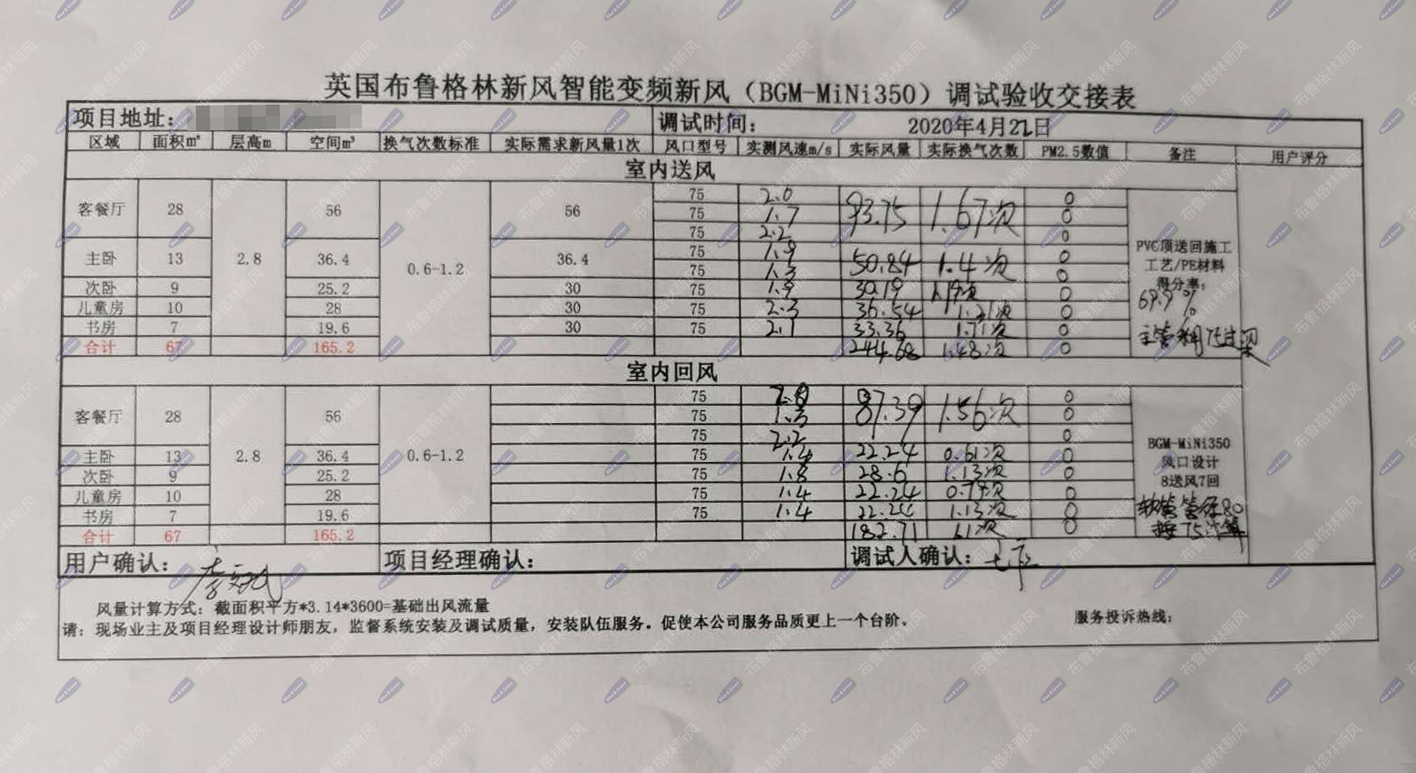 英国布鲁格林新风智能变频新风（BGM-MiNi350）调试验收交接表
项目地址： 调试时间： 2020年4月22日
区域 面积m² 层高m 空间m³ 换气次数标准 实际需求新风量1次 风口型号 实测风速m/s 实际风量 实际换气次数 PM2.5数值 备注 用户评分
室内送风
客餐厅 28 2.8 56 0.6-1.2 56 75 2.0 93.75 1.67次 0
75 1.7 0
75 2.2 0
主卧 13 36.4 36.4 75 1.9 50.84 1.4次 0
75 1.3 0
次卧 9 25.2 30 75 1.9 30.19 1.19次 0
儿童房 10 28 30 75 2.3 36.54 1.31次 0
书房 7 19.6 30 75 2.1 33.36 1.71次 0
合计 67 165.2 244.68 1.48次 0
PVC顶送回施工
工艺/PE材料
得分率：
69.9%
主管利75过梁
室内回风
客餐厅 28 2.8 56 0.6-1.2 75 2.0 87.39 1.56次 0
75 1.3 0
75 2.2 0
主卧 13 36.4 75 1.4 22.24 0.61次 0
次卧 9 25.2 75 1.8 28.6 1.13次 0
儿童房 10 28 75 1.4 22.24 0.79次 0
书房 7 19.6 75 1.4 22.24 1.13次 0
合计 67 165.2 182.71 1.1次 0
BGM-MiNi350
风口设计
8送风7回
软管管径80
按75计算
用户确认： 项目经理确认： 调试人确认：
风量计算方式：截面积平方*3.14*3600=基础出风流量
请：现场业主及项目经理设计师朋友，监督系统安装及调试质量，安装队伍服务。促使本公司服务品质更上一个台阶。 服务投诉热线：
布鲁格林新风